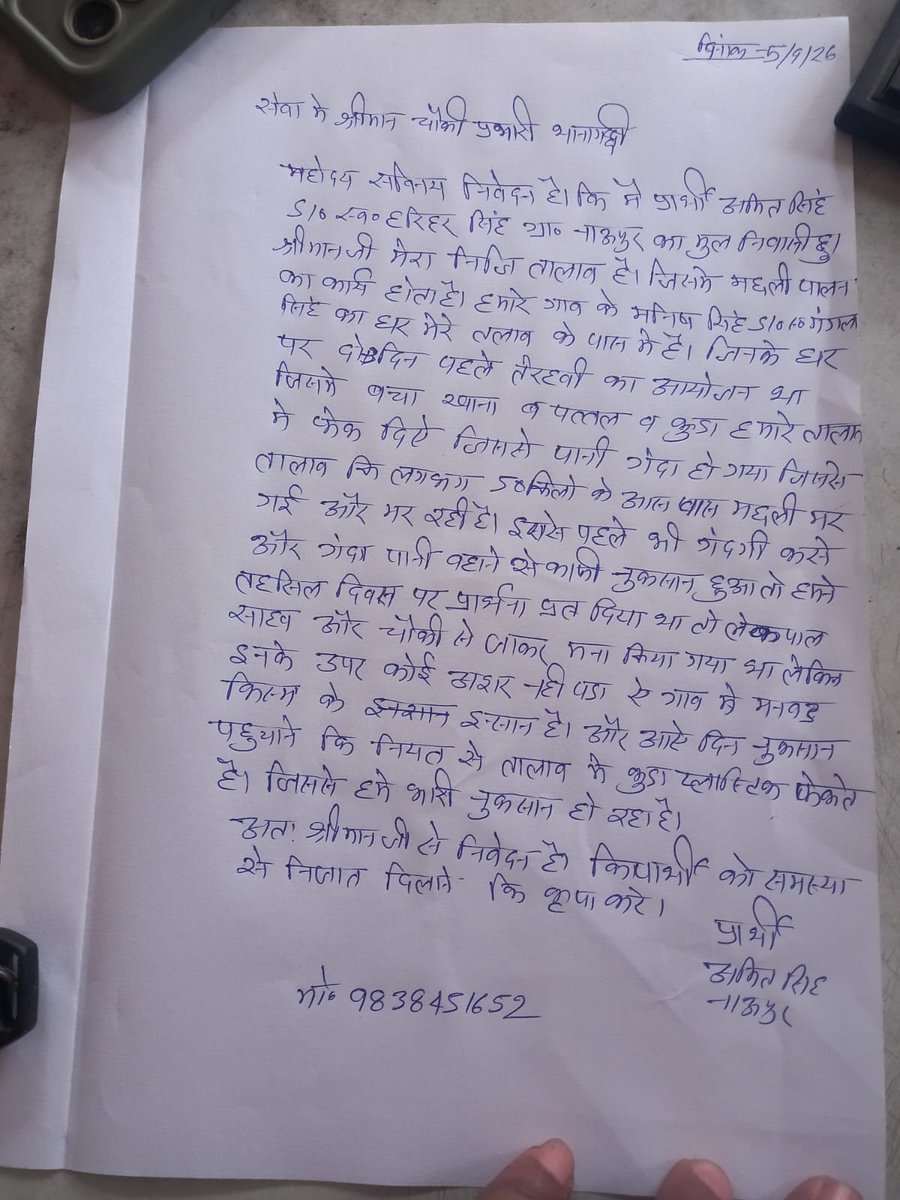 दिनांक-5/9/26
सेवा मे श्रीमान चौकी प्रभारी थानागद्दी
महोदय सविनय निवेदन है। कि मै प्रार्थी अमित सिंह
S/o स्व० हरिहर सिंह ग्रा० नाऊपुर का मुल निवासी हु।
श्रीमान जी मेरा निजि तालाब है। जिसमे मछली पालन
का कार्य होता है। हमारे गाव के मनिष सिंह S/o स्व० मंगला
सिंह का घर मेरे तलाब के पास मे है। जिनके घर
पर दो दिन पहले तेरहवी का आयोजन था
जिसमे बचा खाना व पत्तल व कुडा हमारे तालाब
मे फेक दिऐ जिससे पानी गंदा हो गया जिससे
तालाब कि लगभग 50 किलो के आस पास मछली मर
गई और मर रही है। इससे पहले भी गंदगी करने
और गंदा पानी बहाने से काफी नुकसान हुआ तो हमने
तहसिल दिवस पर प्रार्थना पत्र दिया था तो लेकपाल
साहब और चौकी से जाकर मना किया गया था लेकिन
इनके उपर कोई अशर नही पडा ऐ गाव मे मनबढ
किस्म के इन्सान है। और आऐ दिन नुकसान
पहुचाने कि नियत से तालाब मे कुडा प्लास्टिक फेकते
है। जिससे हमे भारी नुकसान हो रहा है।
अतः श्रीमान जी से निवेदन है। कि प्रार्थी को समस्या
से निजात दिलाने कि कृपा करे।
प्रार्थी
अमित सिंह
नाऊपुर
मो० 9838451652